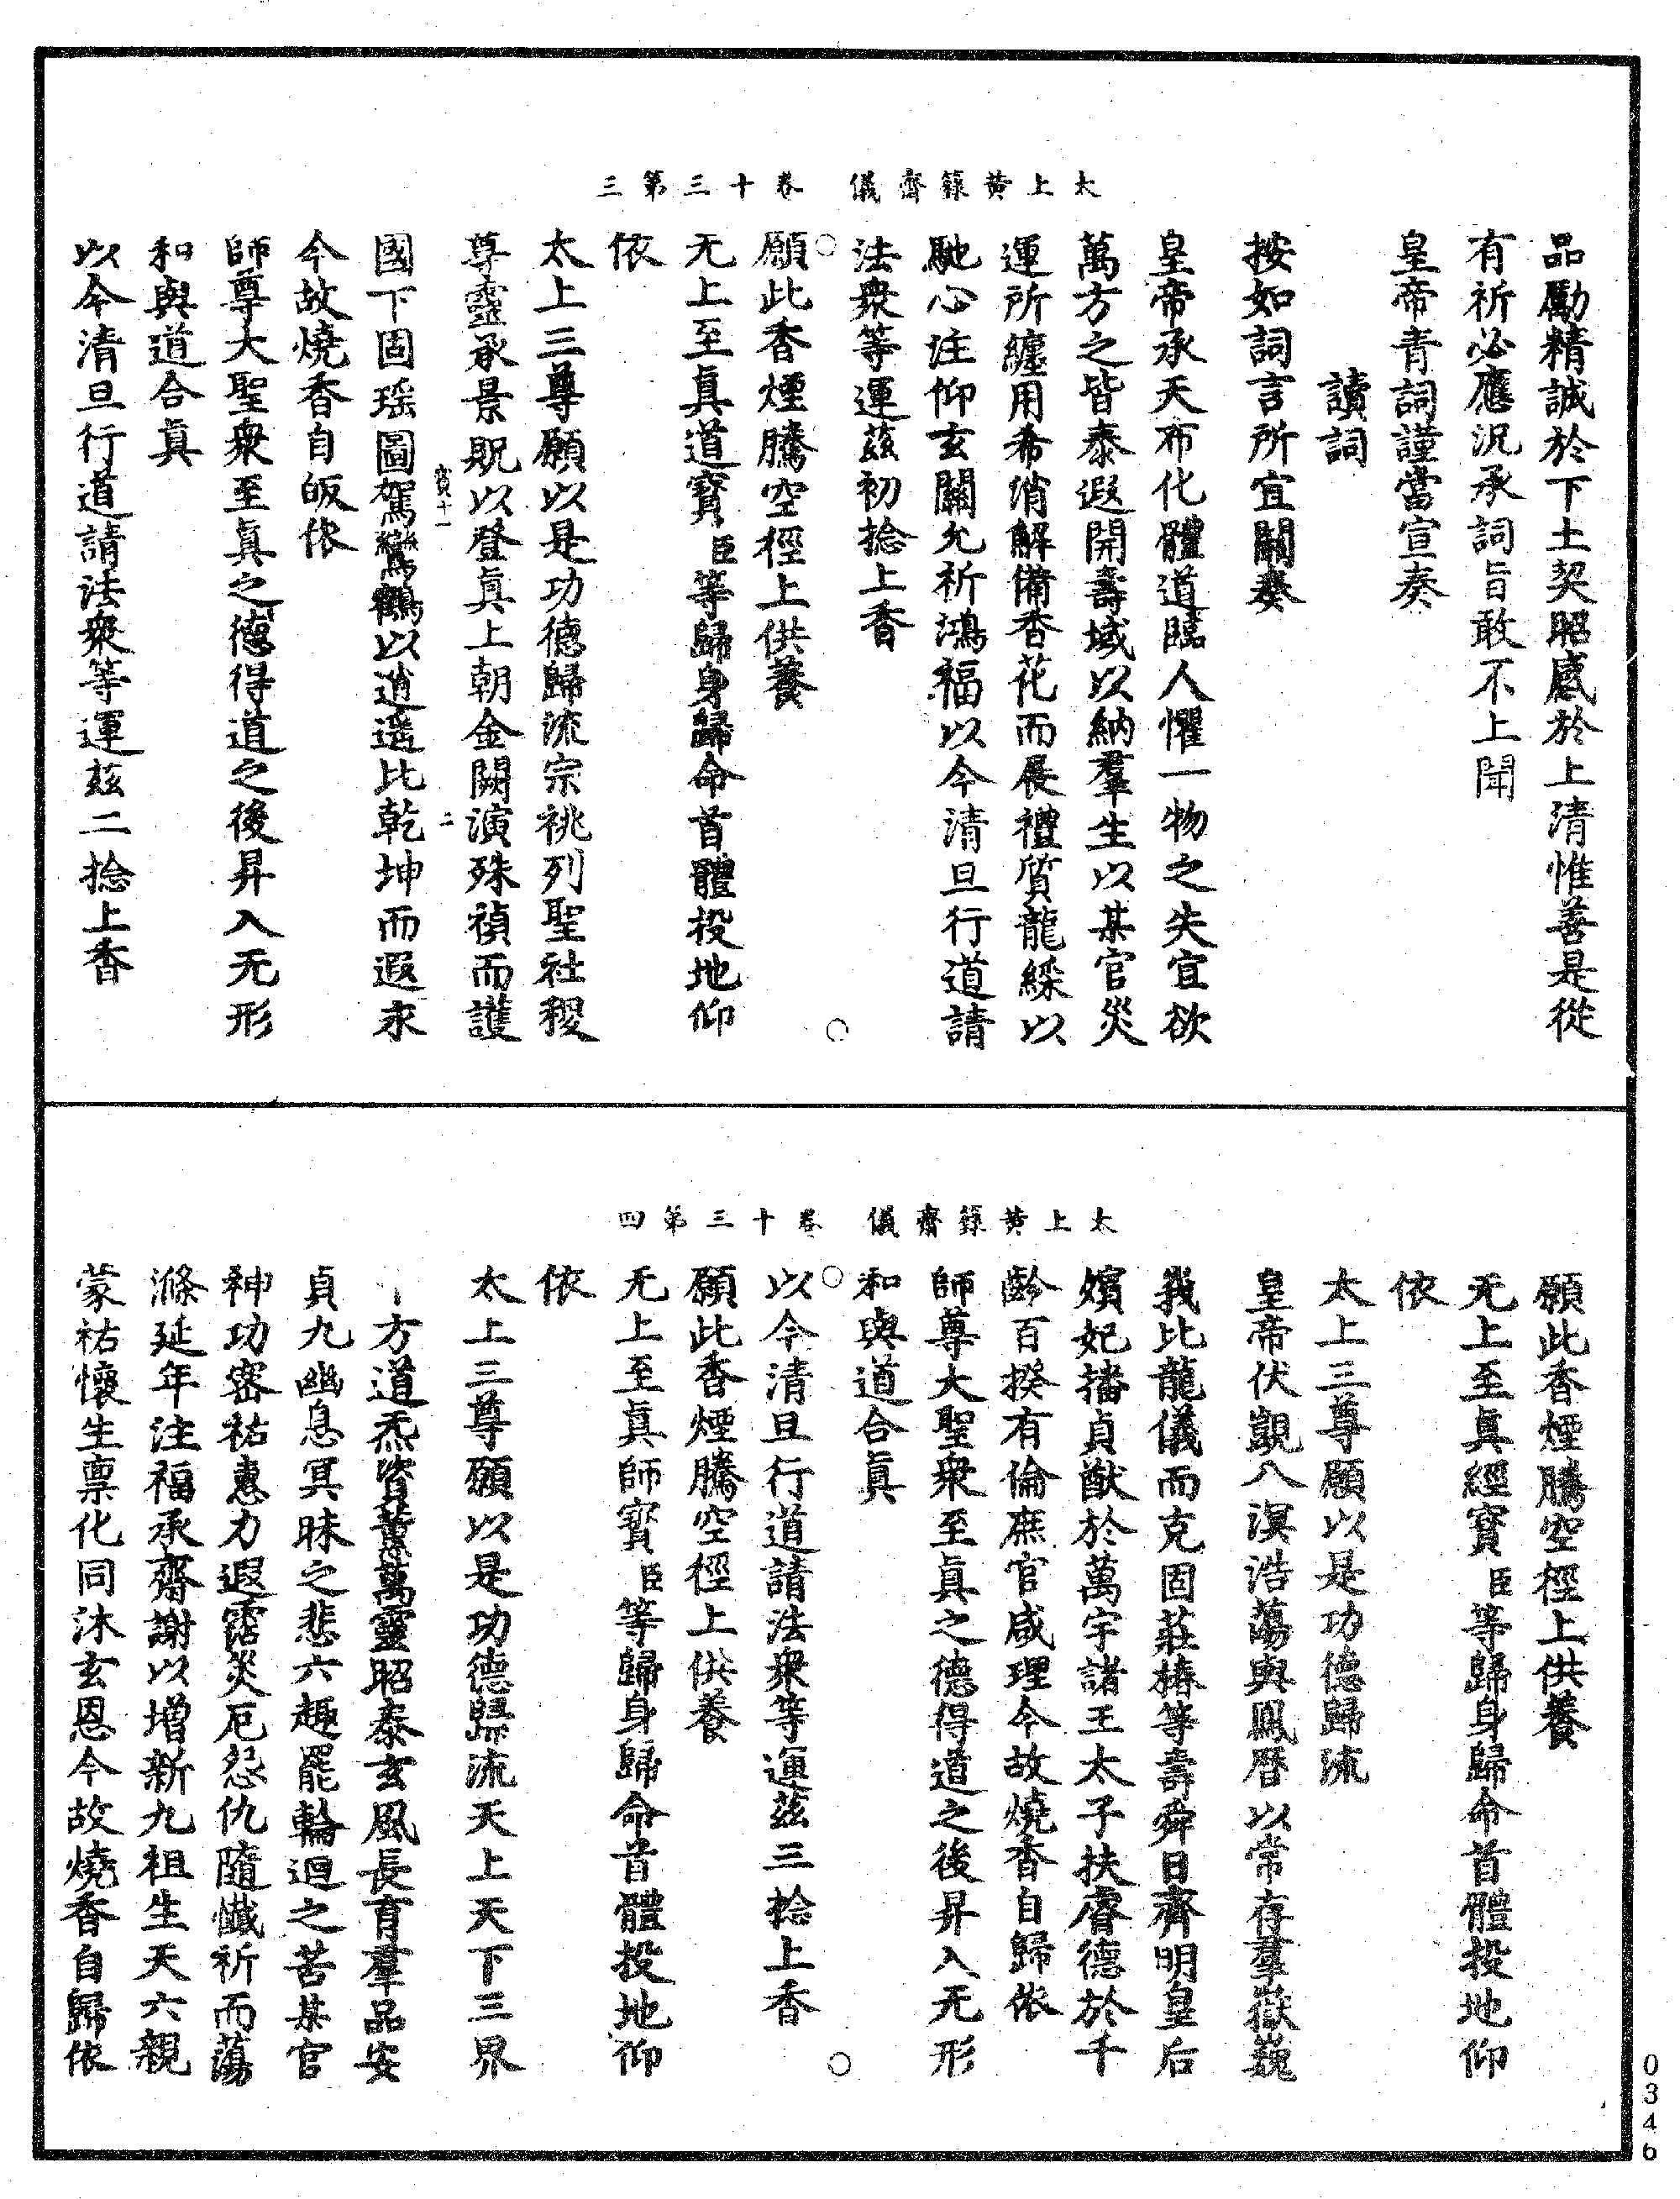 太上黃籙齋儀 卷十三第三
品勵精誠於下土契昭感於上清惟善是從
有祈必應況承詞旨敢不上聞
皇帝青詞謹當宣奏
讀詞
按如詞言所宜關奏
皇帝承天布化體道臨人懼一物之失宜欲
萬方之皆泰遐開壽域以納羣生以某官災
運所纏用希消解備香花而展禮質龍綵以
馳心注仰玄關允祈鴻福以今清旦行道請
法衆等運茲初捻上香
願此香煙騰空徑上供養
无上至眞道寶臣等歸身歸命首體投地仰
依
太上三尊願以是功德歸流宗祧列聖社稷
尊靈承景貺以登眞上朝金闕演殊禎而護
賓十一 二
國下固瑤圖駕鸞鶴以逍遥比乾坤而遐永
今故燒香自皈依
師尊大聖衆至眞之德得道之後昇入无形
和與道合眞
以今清旦行道請法衆等運茲二捻上香
太上黃籙齋儀 卷十三第四
願此香煙騰空徑上供養
无上至眞經寶臣等歸身歸命首體投地仰
依
太上三尊願以是功德歸流
皇帝伏覬八溟浩蕩與鳳曆以常存羣嶽巍
我比龍儀而克固莊椿等壽舜日齊明皇后
嬪妃播貞猷於萬宇諸王太子扶睿德於千
齡百揆有倫庶官咸理今故燒香自歸依
師尊大聖衆至眞之德得道之後昇入无形
和與道合眞
以今清旦行道請法衆等運茲三捻上香
願此香煙騰空徑上供養
无上至眞師寶臣等歸身歸命首體投地仰
依
太上三尊願以是功德歸流天上天下三界
十方道炁皆薰萬靈昭泰玄風長育羣品安
貞九幽息冥昧之悲六趣罷輪迴之苦某官
神功密祐惠力遐霑災厄怨仇隨懺祈而蕩
滌延年注福承齋謝以增新九祖生天六親
蒙祐懷生禀化同沐玄恩今故燒香自歸依
0346